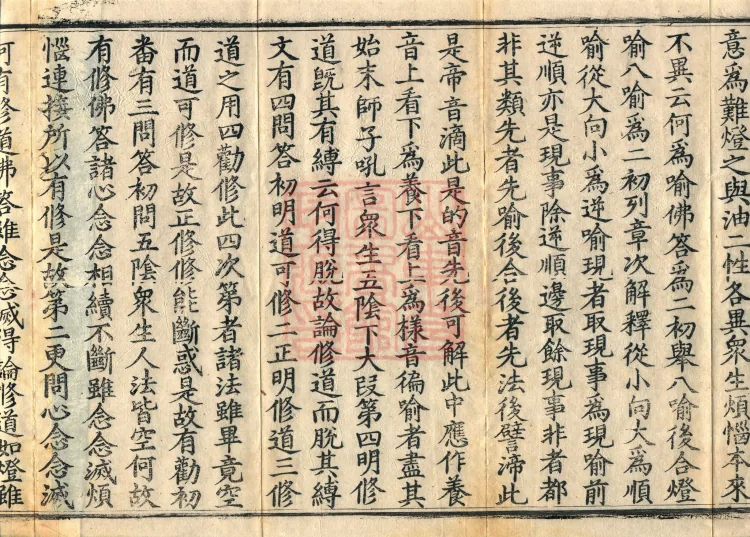 意爲難燈之與油二性各異衆生煩惱本來
不異云何爲喻佛答爲二初舉八喻後合燈
喻八喻爲二初列章次解釋從小向大爲順
喻從大向小爲逆喻現者取現事爲現喻前
逆順亦是現事除逆順邊取餘現事非者都
非其類先者先喻後合後者先法後譬諦此
是帝音滴此是的音先後可解此中應作養
音上看下爲養下看上爲樣音徧喻者盡其
始末師子吼言衆生五陰下大段第四明修
道旣其有縛云何得脫故論修道而脫其縛
文有四問答初明道可修二正明修道三修
道之用四勸修此四次第者諸法雖畢竟空
而道可修是故正修修能斷惑是故有勸初
番有三問答初問五陰衆生人法皆空何故
有修佛答諸心念念相續不斷雖念念滅煩
惱連接所以有修是故第二更問心念念滅
何有修道佛答雖念念滅得論修道如燈雖